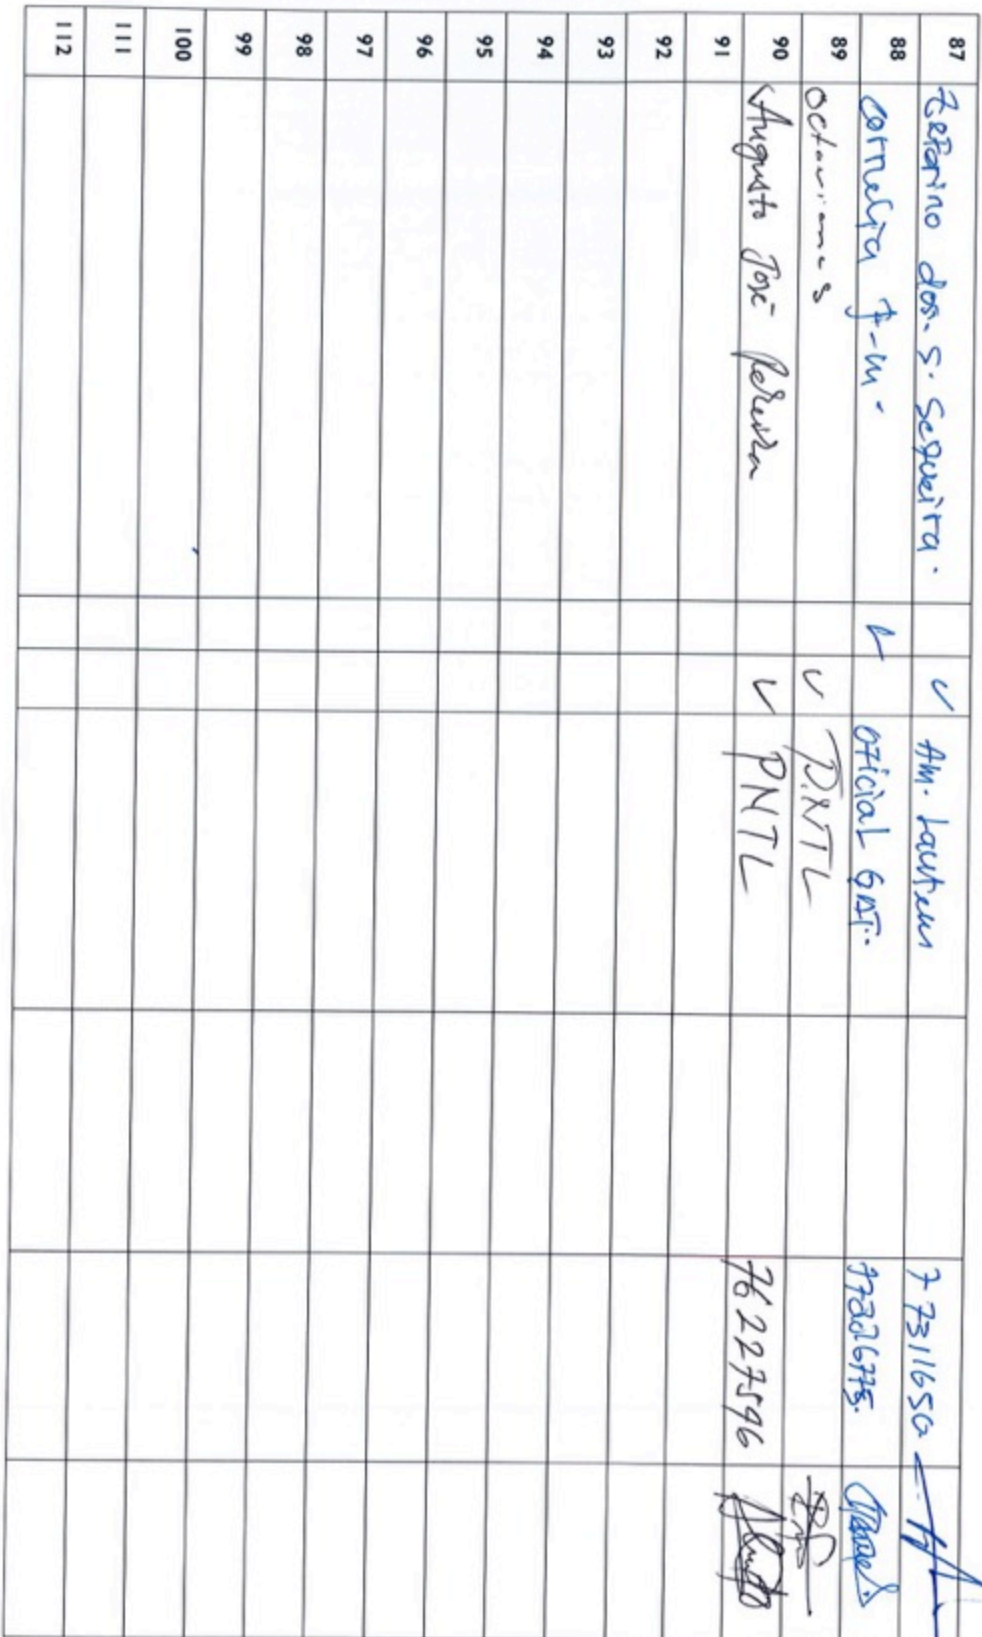 87 Zeferino dos. S. Sequeira. Am. Lautem 77311650
88 Cornelia F-M. Oficial GAT.. 77326775.
89 Octaviano S P.NTL
90 Augusto José Pereira PNTL 76227596
91
92
93
94
95
96
97
98
99
100
111
112